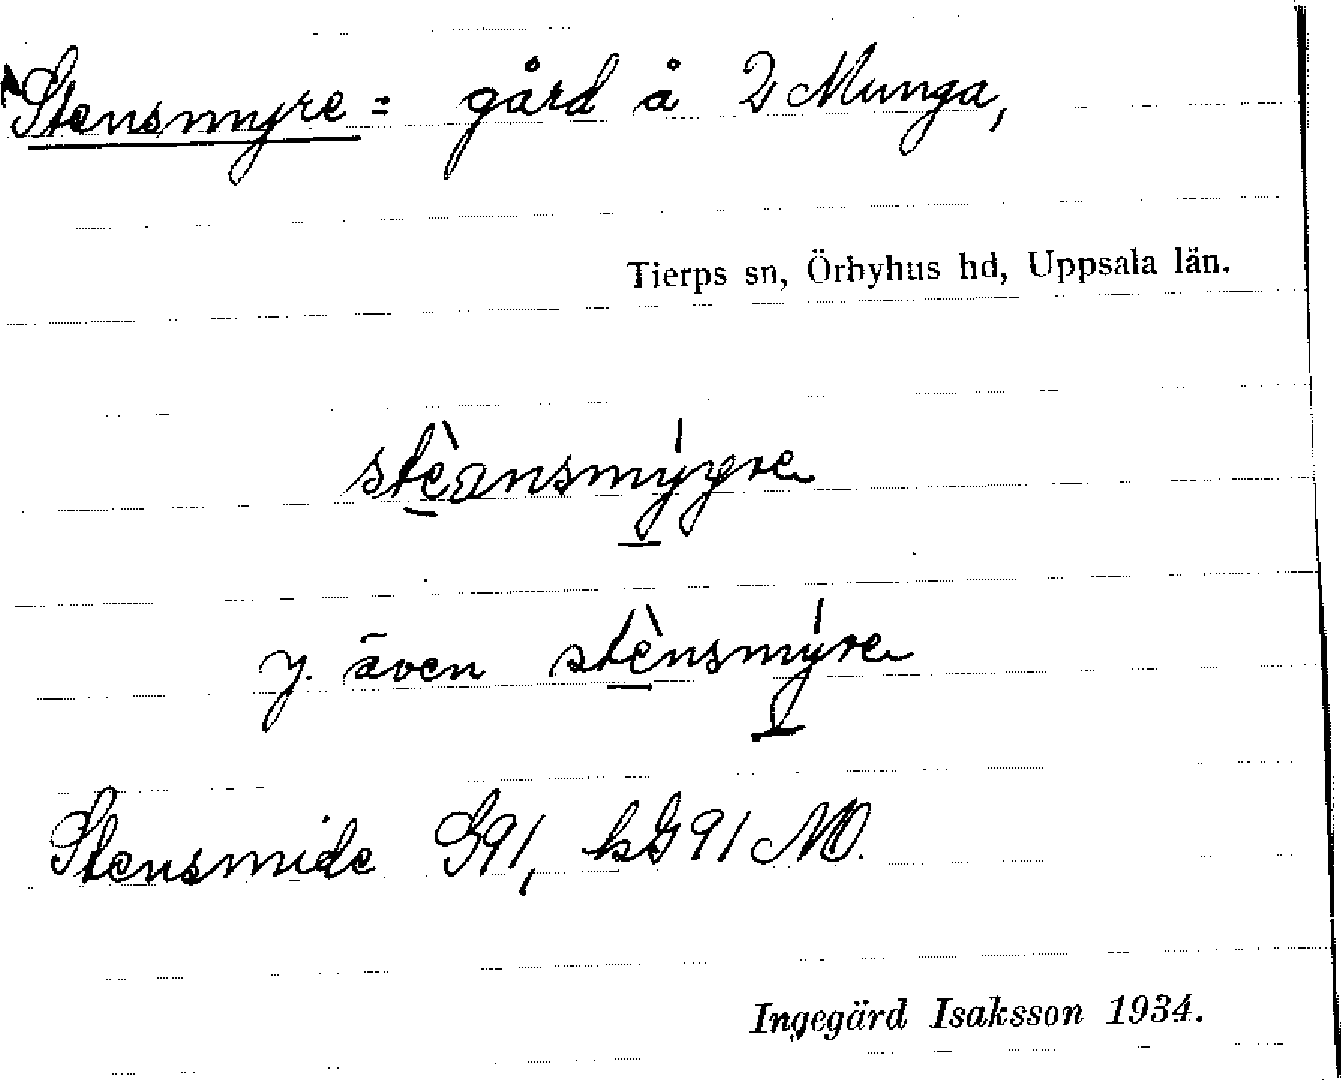 Stensmyre = gård å 2 Munga,
Tierps sn, Örbyhus hd, Uppsala län.
stè̱ənsmýy̱re
y. även stè̱nsmý̱re
Stensmide G91, kG91 MO.
Ingegärd Isaksson 1934.